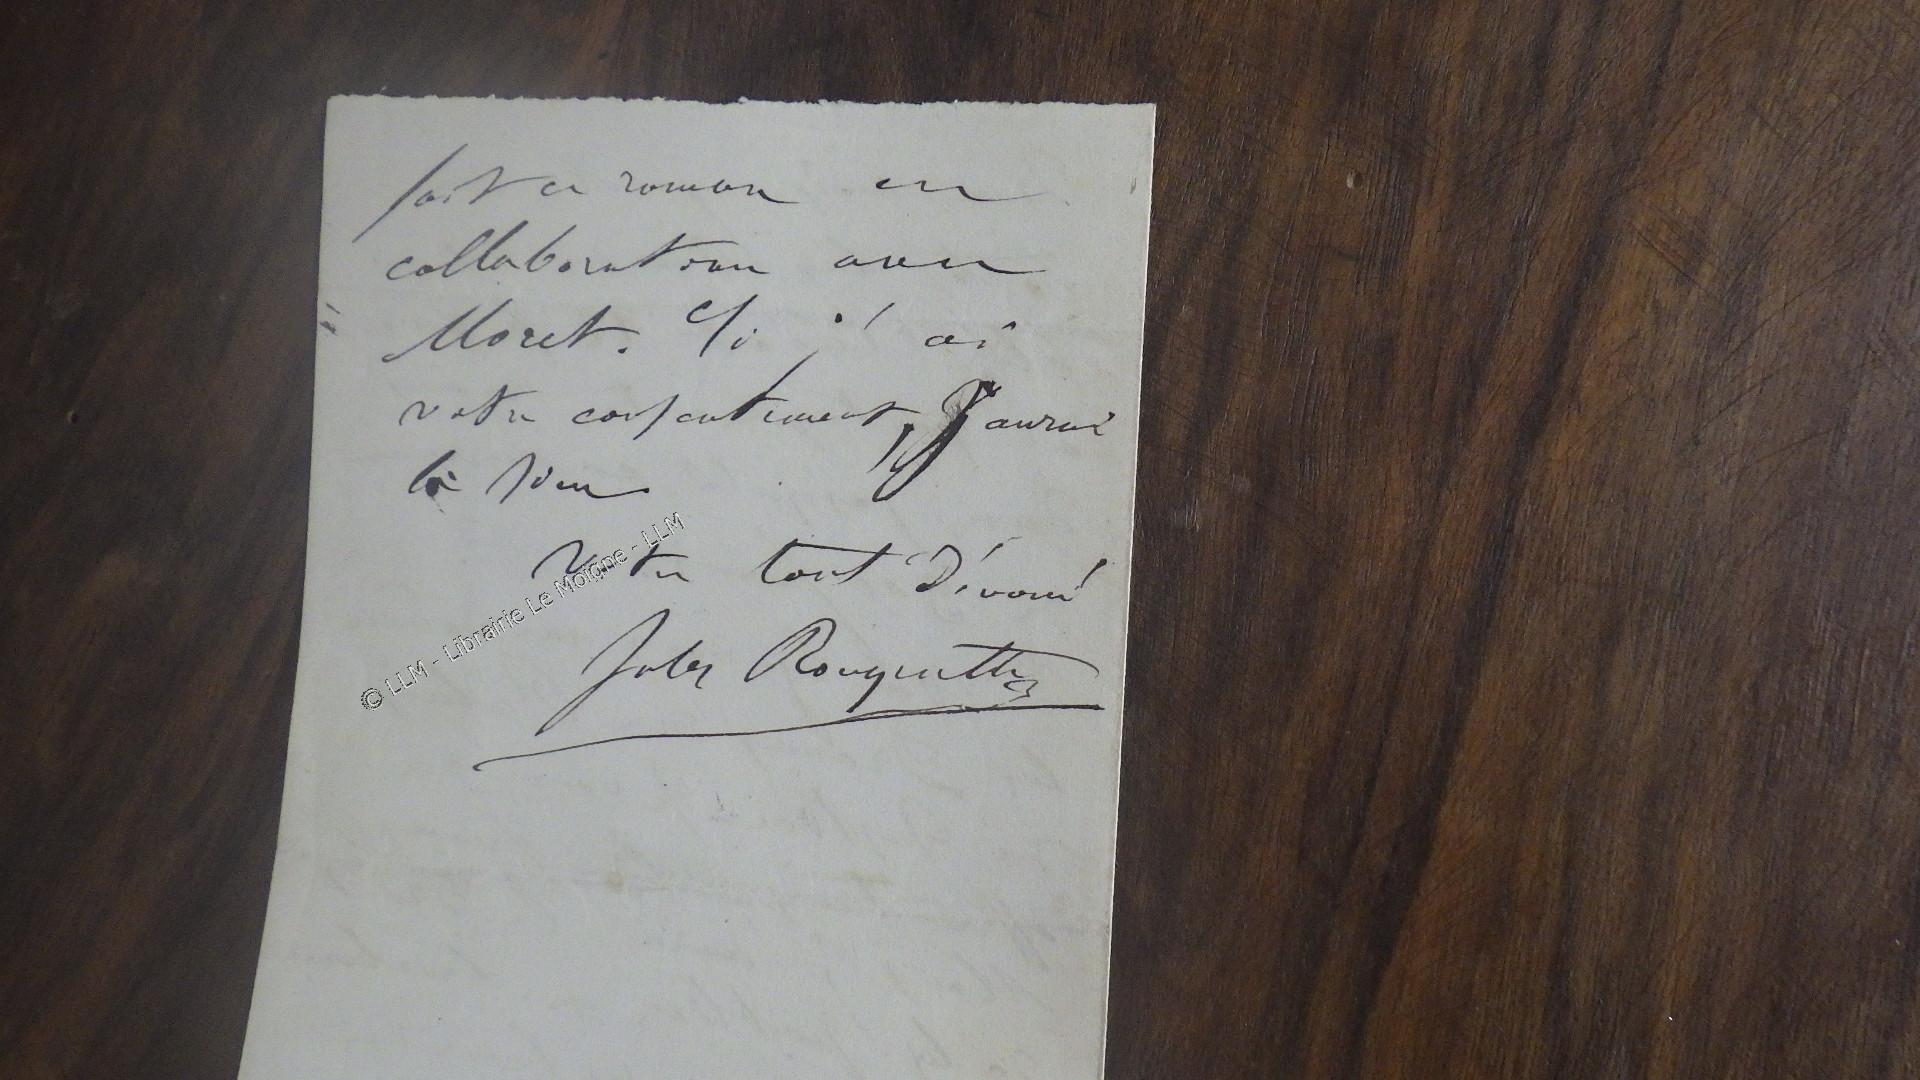 fait ce roman en
collaboration avec
Moret. Si j'ai
votre consentement, j'aurai
le sien.
Votre tout dévoué
Jules Rouquette
© LLM - Librairie Le Moigne - LLM